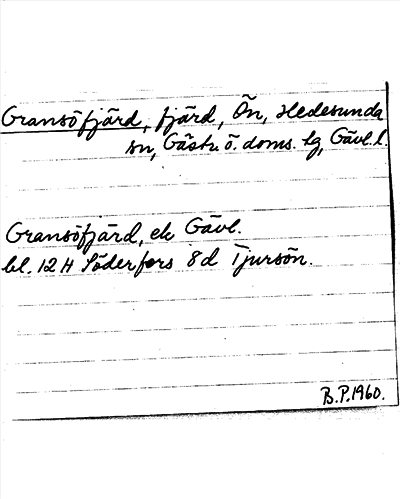 Gransöfjärd, fjärd, Ön, Hedesunda
sn, Gästr. ö. doms. lg, Gävl. l.
Gransöfjärd, ek Gävl.
bl. 12 H Söderfors 8d Tjursön.
B.P. 1960.